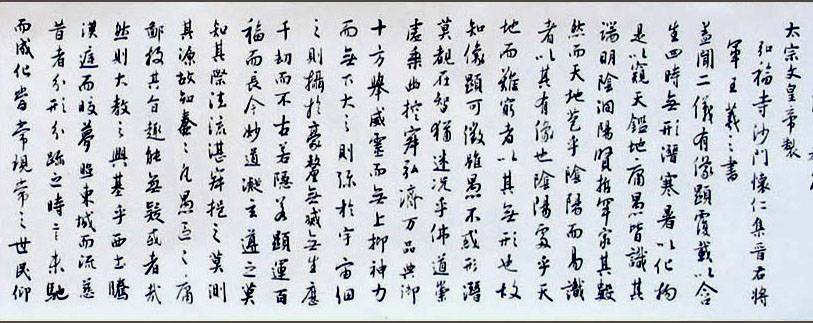 太宗文皇帝製
弘福寺沙門懷仁集晉右將
軍王羲之書
蓋聞二儀有像顯覆載以含
生四時無形潛寒暑以化物
是以窺天鑑地庸愚皆識其
端明陰洞陽賢哲罕窮其數
然而天地苞乎陰陽而易識
者以其有像也陰陽處乎天
地而難窮者以其無形也故
知像顯可徵雖愚不惑形潛
莫覩在智猶迷況乎佛道崇
虛乘幽控寂弘濟万品典御
十方舉威靈而無上抑神力
而無下大之則彌於宇宙細
之則攝於豪釐無滅無生歷
千劫而不古若隱若顯運百
福而長今妙道凝玄遵之莫
知其際法流湛寂挹之莫測
其源故知蠢々凡愚區々庸
鄙投其旨趣能無疑或者哉
然則大教之興基乎西土騰
漢庭而皎夢照東域而流慈
昔者分形分跡之時言未馳
而成化當常現常之世民仰